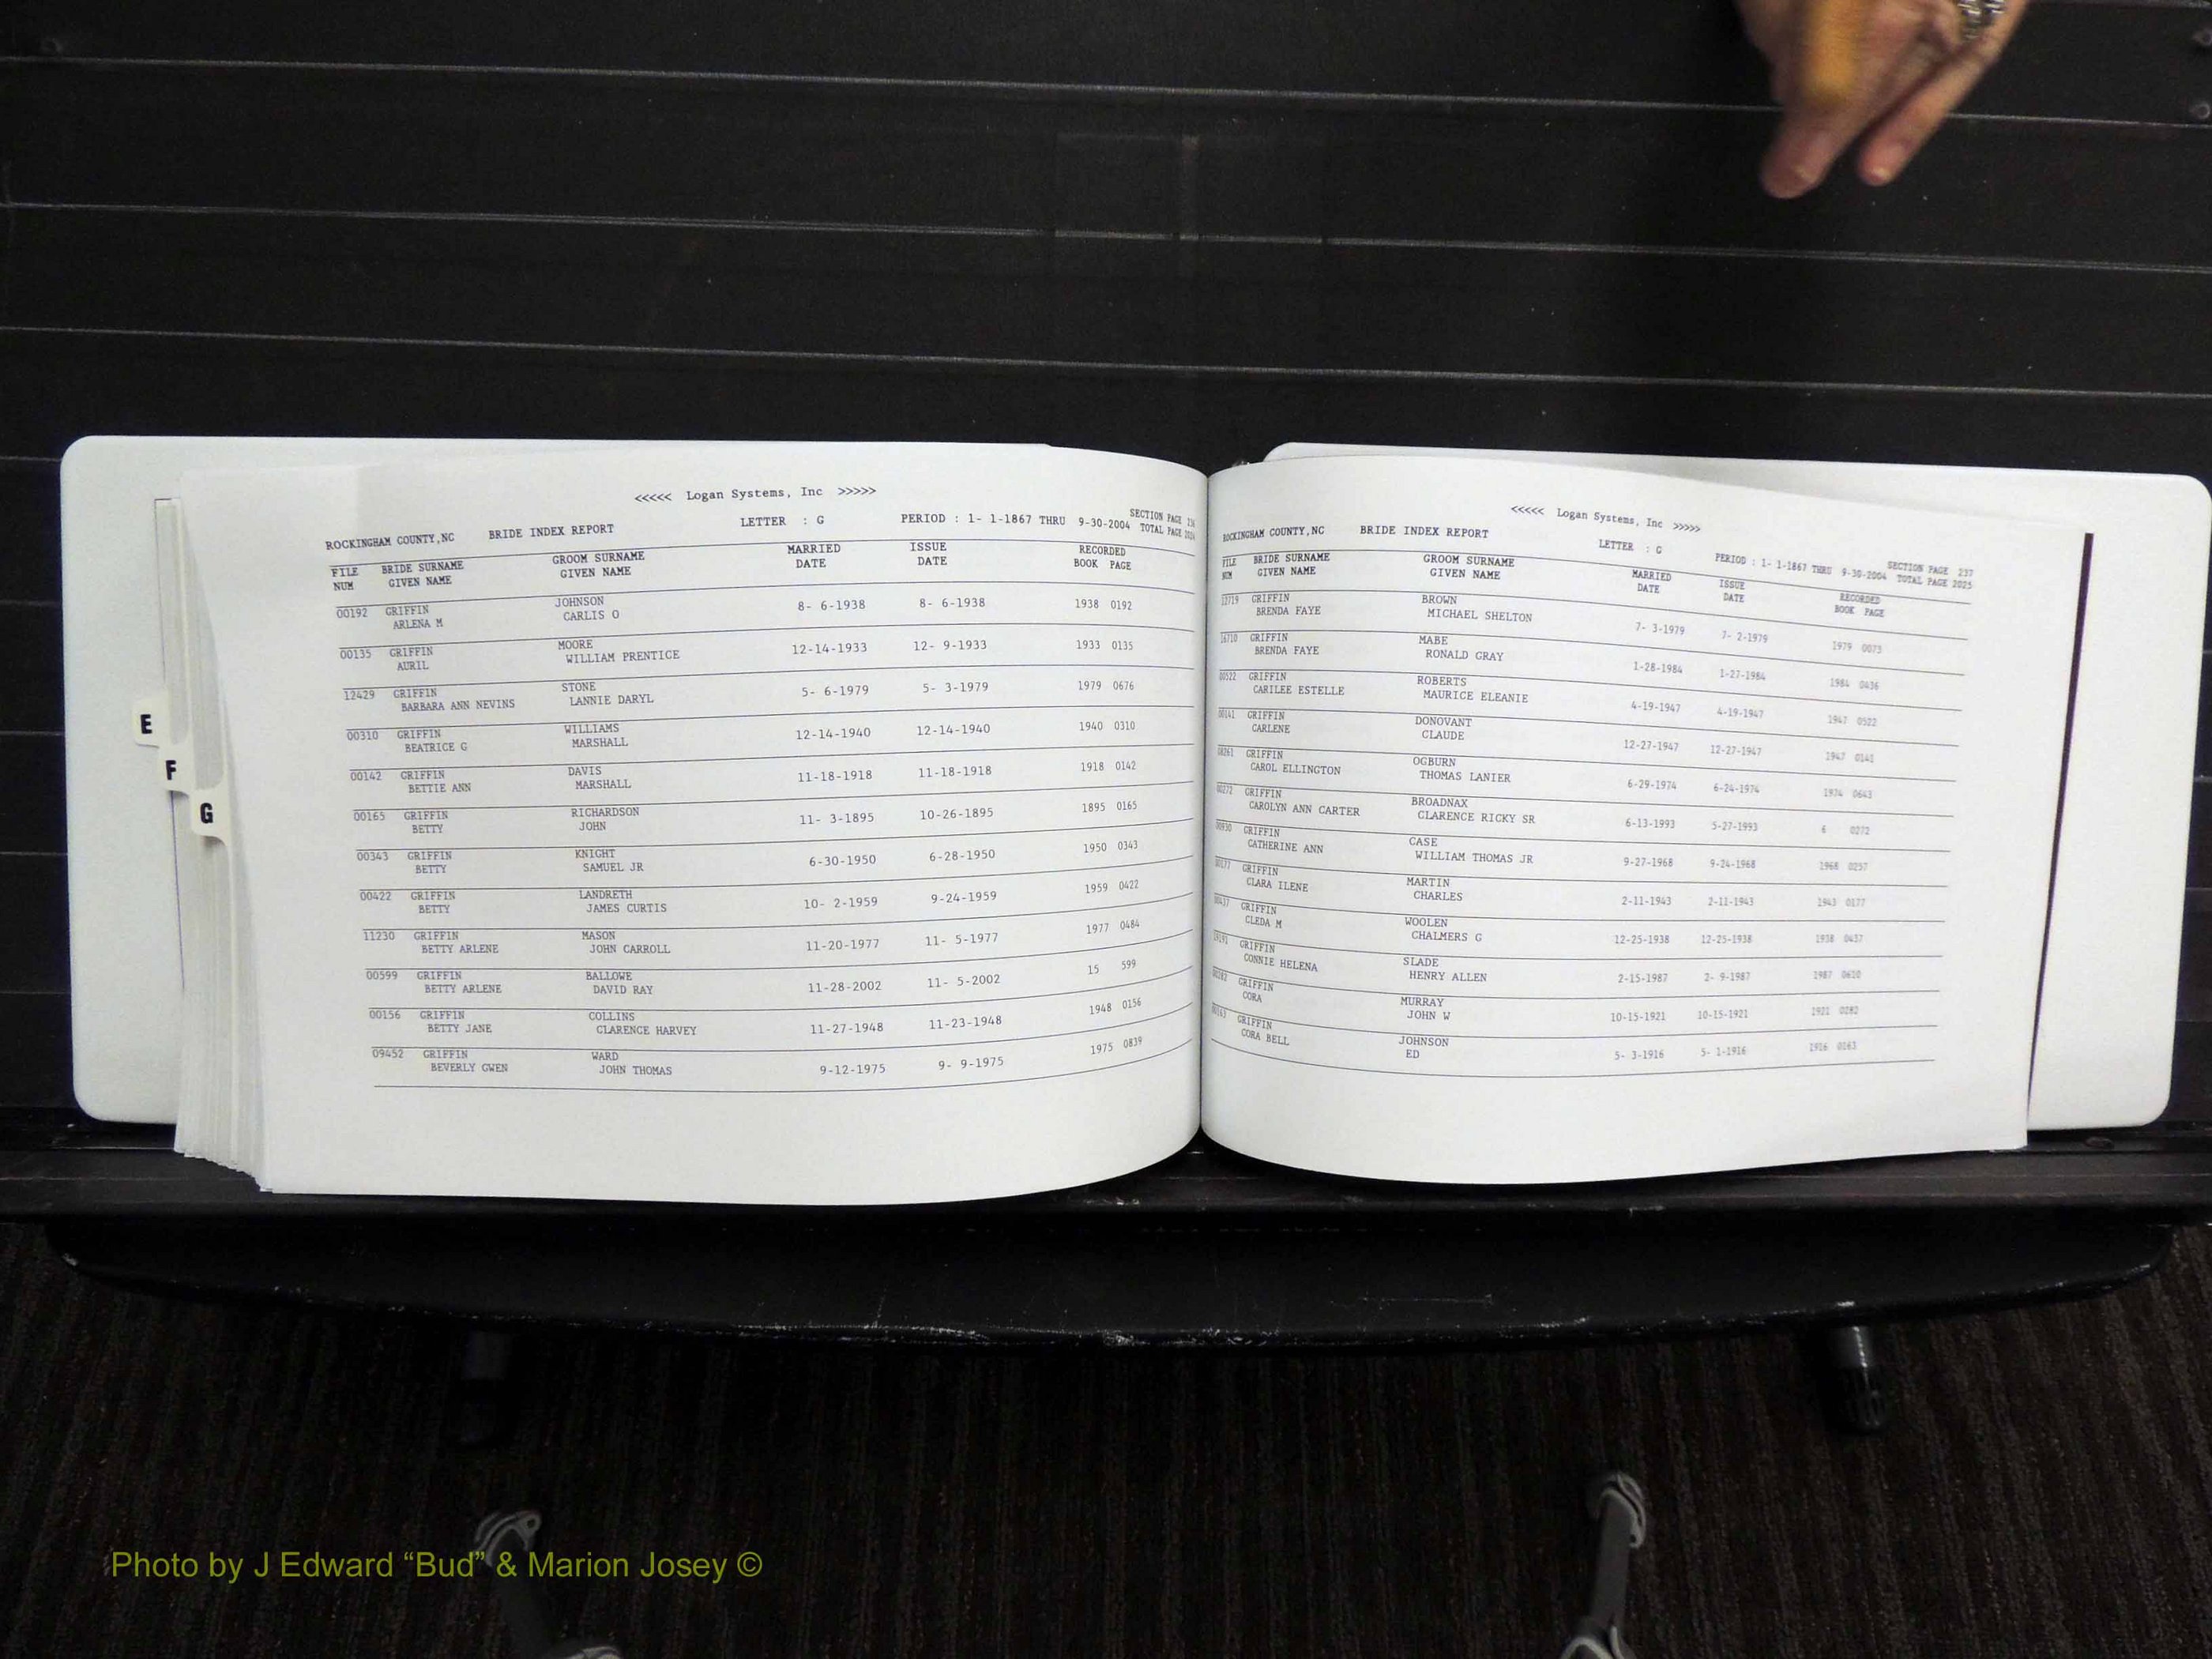 <<<<< Logan Systems, Inc >>>>>
ROCKINGHAM COUNTY,NC BRIDE INDEX REPORT LETTER : G PERIOD : 1- 1-1867 THRU 9-30-2004 SECTION PAGE 236
TOTAL PAGE 2024
FILE BRIDE SURNAME GROOM SURNAME MARRIED ISSUE RECORDED
NUM GIVEN NAME GIVEN NAME DATE DATE BOOK PAGE
00192 GRIFFIN JOHNSON 8- 6-1938 8- 6-1938 1938 0192
ARLENA M CARLIS O
00135 GRIFFIN MOORE 12-14-1933 12- 9-1933 1933 0135
AURIL WILLIAM PRENTICE
12429 GRIFFIN STONE 5- 6-1979 5- 3-1979 1979 0676
BARBARA ANN NEVINS LANNIE DARYL
00310 GRIFFIN WILLIAMS 12-14-1940 12-14-1940 1940 0310
BEATRICE G MARSHALL
00142 GRIFFIN DAVIS 11-18-1918 11-18-1918 1918 0142
BETTIE ANN MARSHALL
00165 GRIFFIN RICHARDSON 11- 3-1895 10-26-1895 1895 0165
BETTY JOHN
00343 GRIFFIN KNIGHT 6-30-1950 6-28-1950 1950 0343
BETTY SAMUEL JR
00422 GRIFFIN LANDRETH 10- 2-1959 9-24-1959 1959 0422
BETTY JAMES CURTIS
11230 GRIFFIN MASON 11-20-1977 11- 5-1977 1977 0484
BETTY ARLENE JOHN CARROLL
00599 GRIFFIN BALLOWE 11-28-2002 11- 5-2002 15 599
BETTY ARLENE DAVID RAY
00156 GRIFFIN COLLINS 11-27-1948 11-23-1948 1948 0156
BETTY JANE CLARENCE HARVEY
09452 GRIFFIN WARD 9-12-1975 9- 9-1975 1975 0839
BEVERLY GWEN JOHN THOMAS
E
F
G
<<<<< Logan Systems, Inc >>>>>
ROCKINGHAM COUNTY,NC BRIDE INDEX REPORT LETTER : G PERIOD : 1- 1-1867 THRU 9-30-2004 SECTION PAGE 237
TOTAL PAGE 2025
FILE BRIDE SURNAME GROOM SURNAME MARRIED ISSUE RECORDED
NUM GIVEN NAME GIVEN NAME DATE DATE BOOK PAGE
12719 GRIFFIN BROWN 7- 3-1979 7- 2-1979 1979 0073
BRENDA FAYE MICHAEL SHELTON
16710 GRIFFIN MABE 1-28-1984 1-27-1984 1984 0436
BRENDA FAYE RONALD GRAY
00522 GRIFFIN ROBERTS 4-19-1947 4-19-1947 1947 0522
CARILEE ESTELLE MAURICE ELEANIE
00141 GRIFFIN DONOVANT 12-27-1947 12-27-1947 1947 0141
CARLENE CLAUDE
08261 GRIFFIN OGBURN 6-29-1974 6-24-1974 1974 0643
CAROL ELLINGTON THOMAS LANIER
00272 GRIFFIN BROADNAX 6-13-1993 5-27-1993 6 0272
CAROLYN ANN CARTER CLARENCE RICKY SR
00930 GRIFFIN CASE 9-27-1968 9-24-1968 1968 0257
CATHERINE ANN WILLIAM THOMAS JR
00177 GRIFFIN MARTIN 2-11-1943 2-11-1943 1943 0177
CLARA ILENE CHARLES
00437 GRIFFIN WOOLEN 12-25-1938 12-25-1938 1938 0437
CLEDA M CHALMERS G
GRIFFIN SLADE 2-15-1987 2- 9-1987 1987 0610
CONNIE HELENA HENRY ALLEN
00282 GRIFFIN MURRAY 10-15-1921 10-15-1921 1921 0282
CORA JOHN W
00163 GRIFFIN JOHNSON 5- 3-1916 5- 1-1916 1916 0163
CORA BELL ED
Photo by J Edward “Bud” & Marion Josey ©